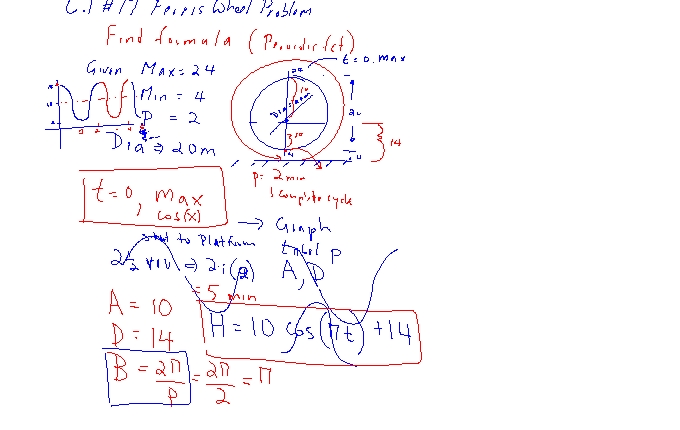 6.1 #17 Ferris Wheel Problem
Find formula (Periodic fct)
Given Max = 24
Min = 4
P = 2
Dia ⇒ 20m
t=0, max
24
10
Dia=20m
20
14
p= 2min
1 complete cycle
t=0, max
cos(x)
→ Graph
to Platform
until P
A, D
2½ rev ⇒ 2½(2)
= 5 min
A = 10
D = 14
H = 10 cos(πt) +14
B = 2π/P = 2π/2 = π